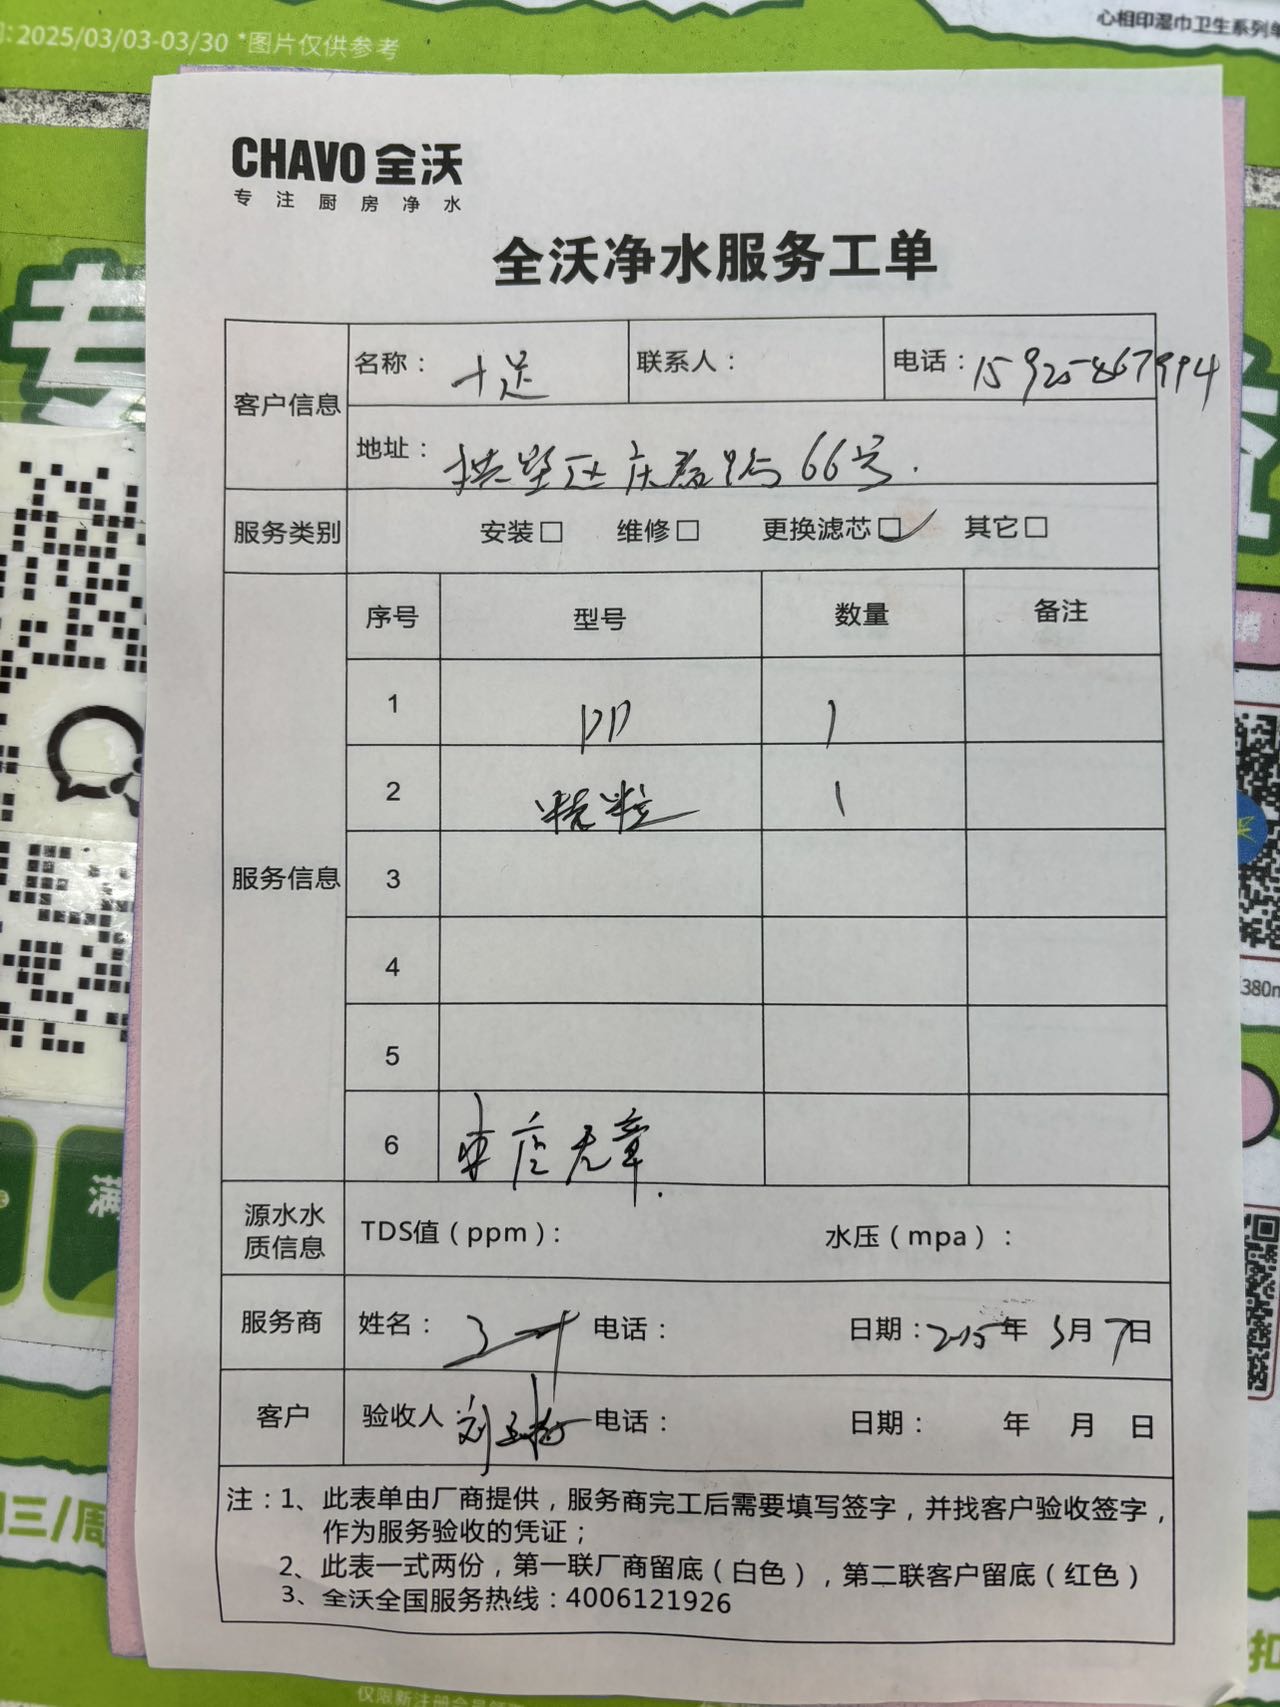 2025/03/03-03/30 *图片仅供参考
心相印湿巾卫生系列单
CHAVO 全沃
专注厨房净水
全沃净水服务工单
客户信息
名称： 十足
联系人：
电话：15925867994
地址： 拱墅区庆隆路66号.
服务类别
安装□ 维修□ 更换滤芯□✓ 其它□
服务信息
序号 型号 数量 备注
1 PP 1
2 颗粒 1
3
4
5
6 本店无章.
源水水质信息
TDS值（ppm）： 水压（mpa）：
服务商 姓名： 电话： 日期：2025年 3月 7日
客户 验收人： 刘 电话： 日期： 年 月 日
注：1、此表单由厂商提供，服务商完工后需要填写签字，并找客户验收签字，
作为服务验收的凭证；
2、此表一式两份，第一联厂商留底（白色），第二联客户留底（红色）
3、全沃全国服务热线：4006121926
专
满
380m
三/周
扣